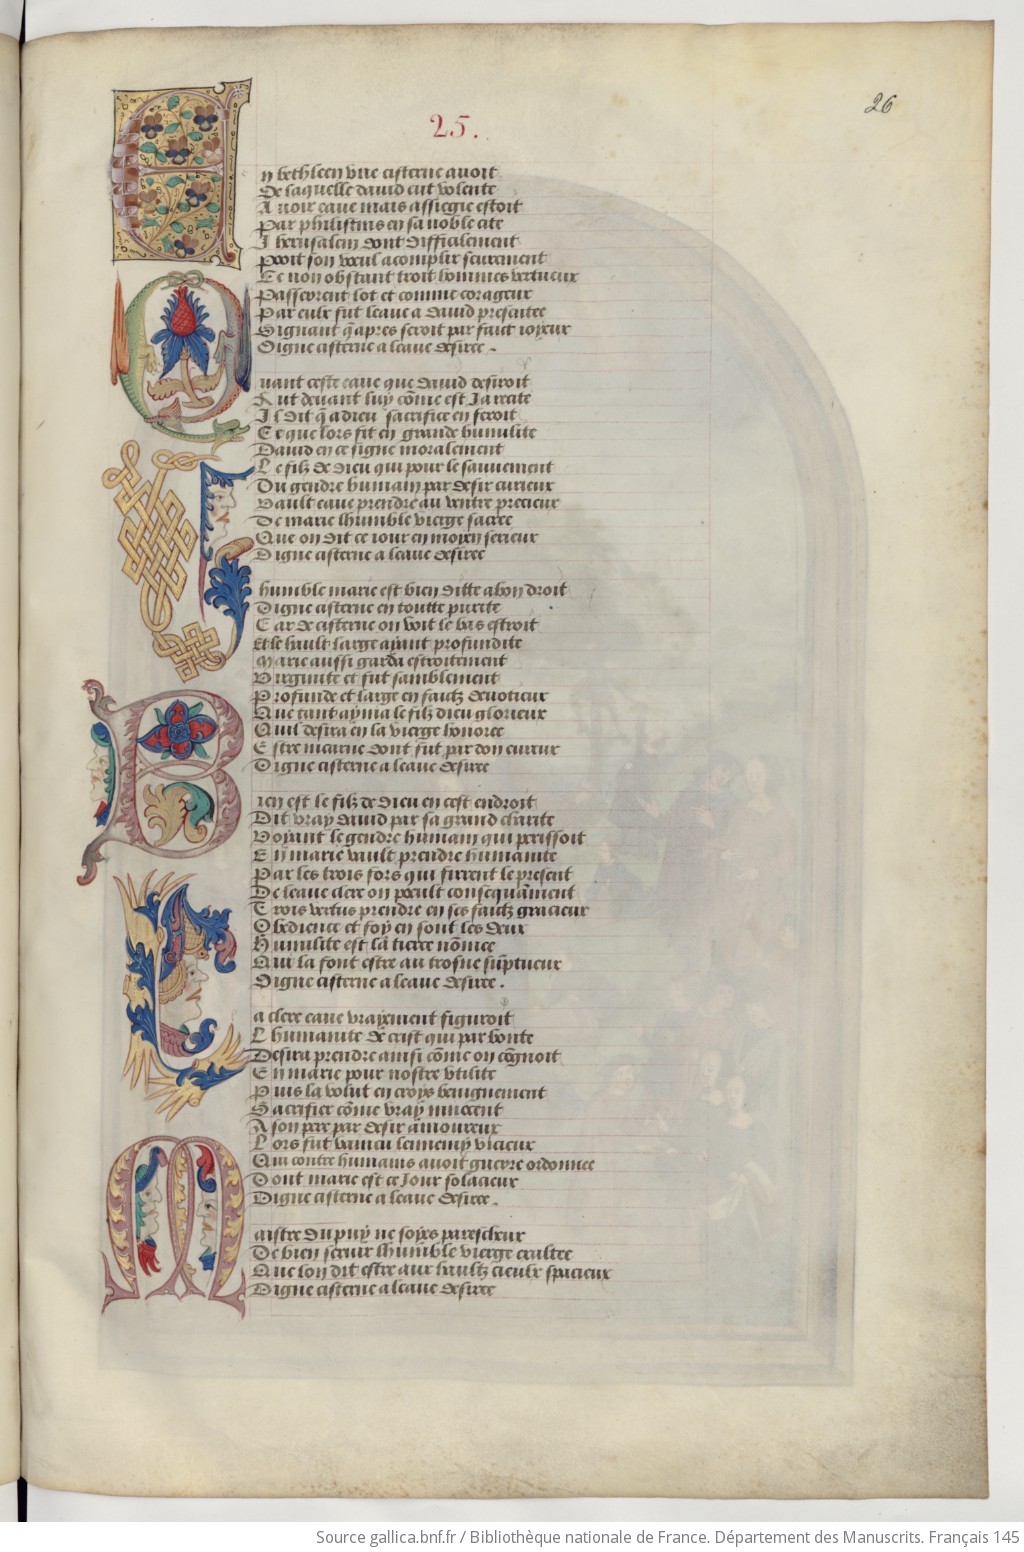 26
25.
En bethleen vne cisterne auoit
De laquelle dauid eut volente
Auoir eaue mais assiegie estoit
Par philistins en sa noble cite
Iherusalem dont difficilement
Pooit son voeul acomplir seurement
Ce non obstant trois hommes vertueux
Passerent lot et comme corageux
Par eulx fut leaue a dauid presentee
Signant q̄ apres seroit par faict ioyeux
Digne cisterne a leaue desiree .
Quant ceste eaue que dauid desiroit
Fut deuant luy cōme est Ja recite
Il dit q̄ a dieu sacrifice en feroit
Ce que lors fit en grande humilite
Dauid en ce signe moralement
Le filz de dieu qui pour le sauuement
Du gendre humain par desir curieux
Vault eaue prendre au ventre precieux
De marie lhumble vierge sacree
Que on dit ce iour en moyen serieux
Digne cisterne a leaue desiree
Lhumble marie est bien ditte a bon droit
Digne cisterne en toutte purete
Car de cisterne on voit le bas estroit
Et le hault large ayant profundite
Marie aussi garda estroitement
Virginite et fut samblement
Profunde et large en faictz deuotieux
Que tant ayma le filz dieu glorieux
Quil desira en la vierge honoree
Estre incarne dont fut par don eureux
Digne cisterne a leaue desiree
Bien est le filz de dieu en cest endroit
Dit vray dauid par sa grand charite
Voyant le gendre humain qui perissoit
En marie vault prendre humanite
Par les trois fors qui firrent le present
De leaue clere on poeult consequāment
Trois vertus prendre en ses faictz gracieux
Obedience et foy en sont les deux
Humilite est la tierce nōmee
Qui la font estre au trosne sūptueux
Digne cisterne a leaue desiree .
La clere eaue vrayement figuroit
Lhumanite de crist qui par bonte
Desira prendre ainsi cōme on cōgnoit
En marie pour nostre vtilite
Puis la volut en croys benignement
Sacrifier cōme vray innocent
A son pere par desir amoureux
Lors fut vaincu lennemy vicieux
Qui contre humains auoit guerre ordonnee
Dont marie est ce Jour solacieux
Digne cisterne a leaue desiree .
Maistre du puy ne soyes paresceux
De bien seruir lhumble vierge exaltee
Que lon dit estre aux haultz cieulx spacieux
Digne cisterne a leaue desiree
Source gallica.bnf.fr / Bibliothèque nationale de France. Département des Manuscrits. Français 145